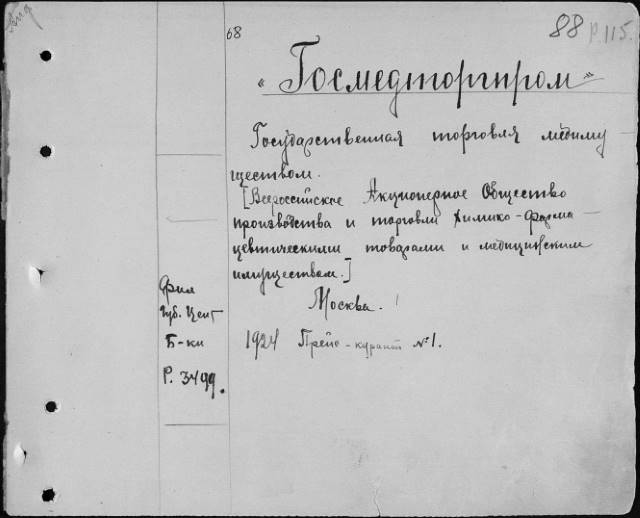 68
88 Р. 115.
„Госмедторгпром"
Государственная торговля медиму-
ществом.
[Всероссийское Акционерное Общество
производства и торговли химико-фарма-
цевтическими товарами и медицинским
имуществом.]
Москва.
Фил
Губ. Цент
Б-ки
Р. 3499.
1924 Прейс-курант №1.